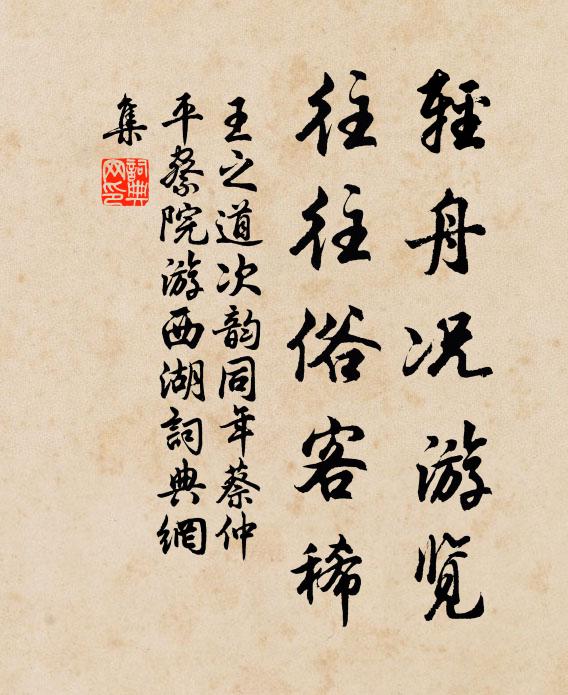 輕舟况游览
往往俗客稀
王之道次韵同年蔡仲
平察院游西湖詞典網
集
詞典
网印